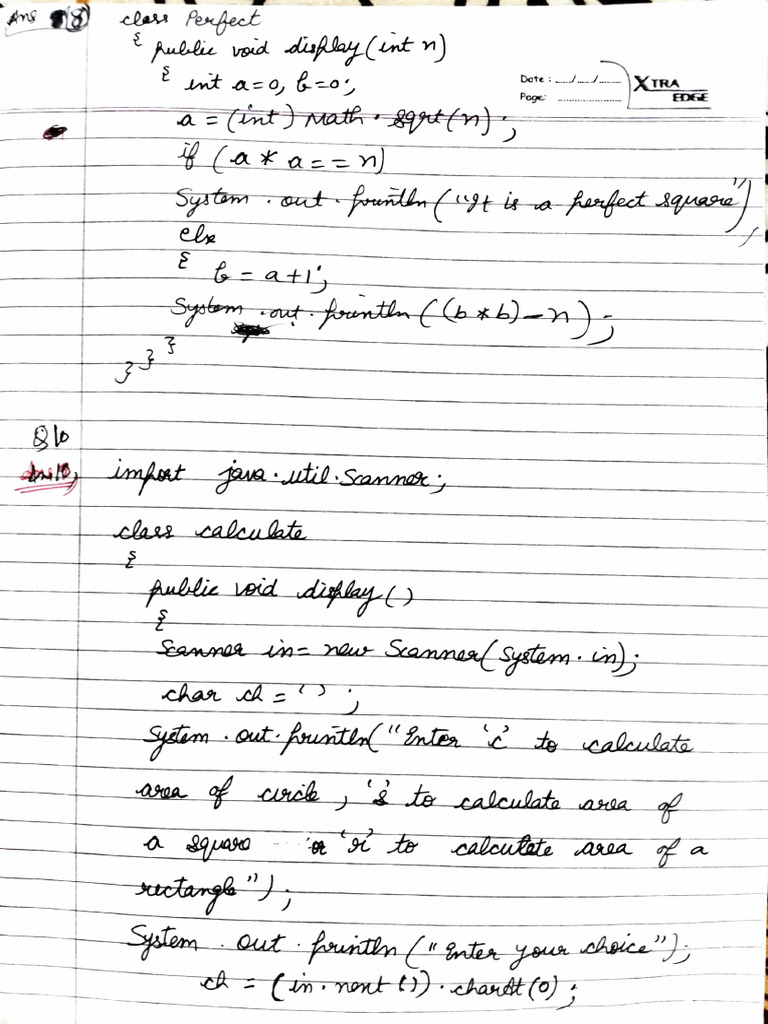 Ans 8) class Perfect
{ public void display(int n)
{ int a=0, b=0;
Date : ..../..../.... XTRA
Page: .................. EDGE
a = (int) Math.sqrt(n);
if (a * a == n)
System.out.println("It is a perfect square");
else
{ b = a+1;
System.out.println((b*b)-n);
}
}
}
Q10
Ans10, import java.util.Scanner;
class calculate
{
public void display()
{
Scanner in= new Scanner(System.in);
char ch = ' ';
System.out.println("Enter 'c' to calculate
area of circle, 's' to calculate area of
a square or 'r' to calculate area of a
rectangle");
System.out.println("Enter your choice");
ch = (in.next()).charAt(0);